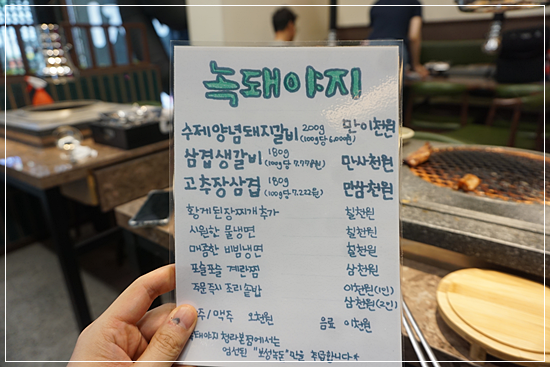 녹돼야지
수제양념돼지갈비 200g (100g당 6,000원) 만이천원
삼겹생갈비 180g (100g당 7,778원) 만사천원
고추장삼겹 180g (100g당 7,222원) 만삼천원
황게된장찌개추가 칠천원
시원한 물냉면 칠천원
매콤한 비빔냉면 칠천원
포슬포슬 계란찜 삼천원
주문즉시 조리 솥밥 이천원(1인)
삼천원(2인)
주/맥주 오천원 음료 이천원
돼야지 청라본점에서는
엄선된 "보성녹돈"만을 취급합니다